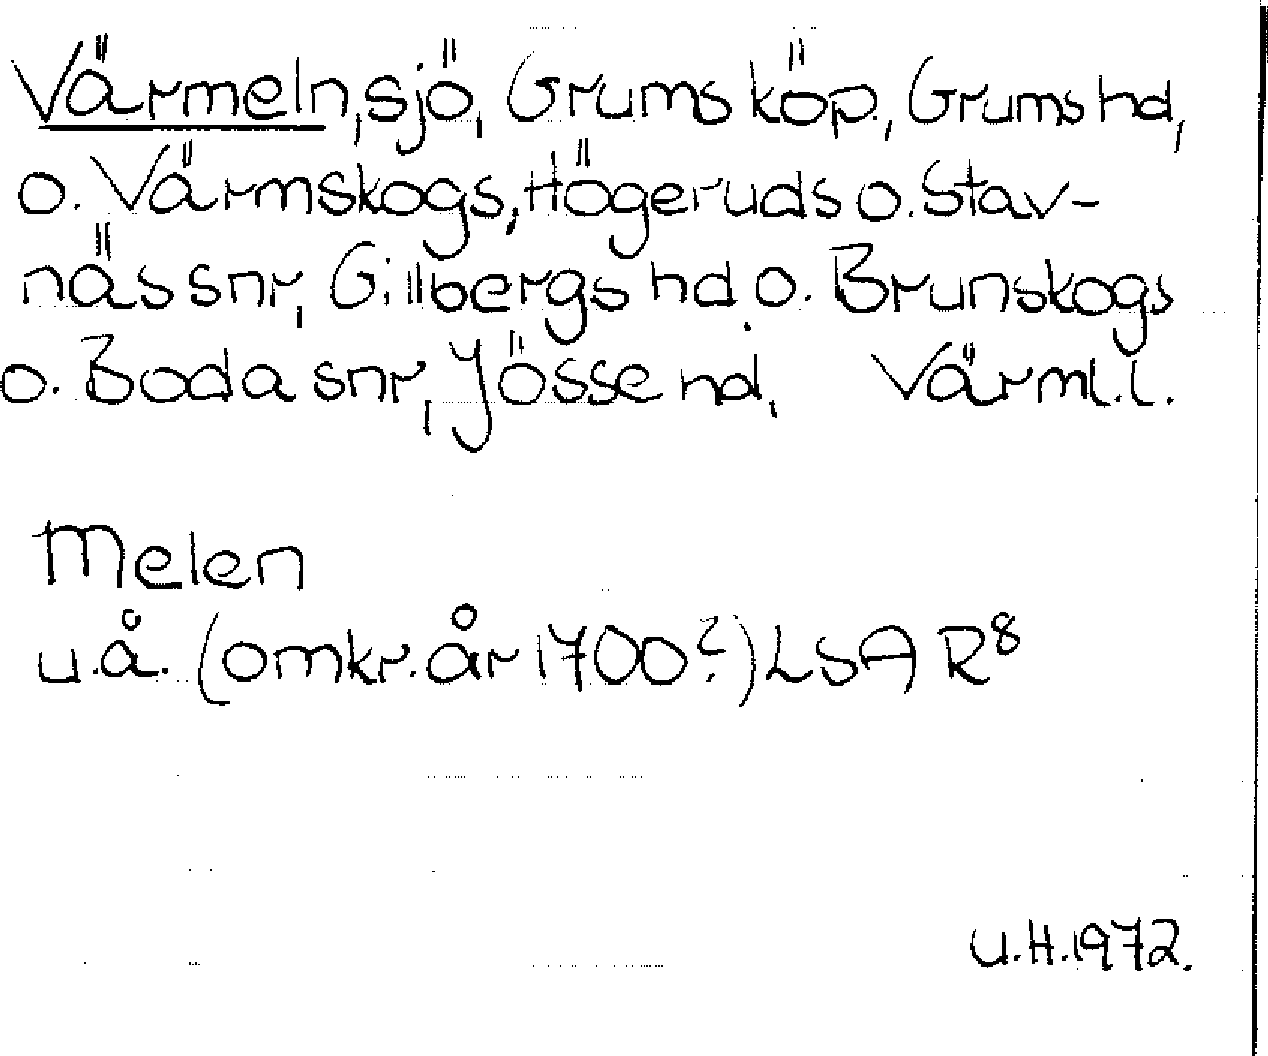 Värmeln, sjö, Grums köp., Grums hd,
o. Värmskogs, Högeruds o. Stav-
näs snr, Gillbergs hd. o. Brunskogs
o. Boda snr, Jösse hd, Värml. l.
Melen
u.å. (omkr. år 1700?) LSA R8
U.H. 1972.